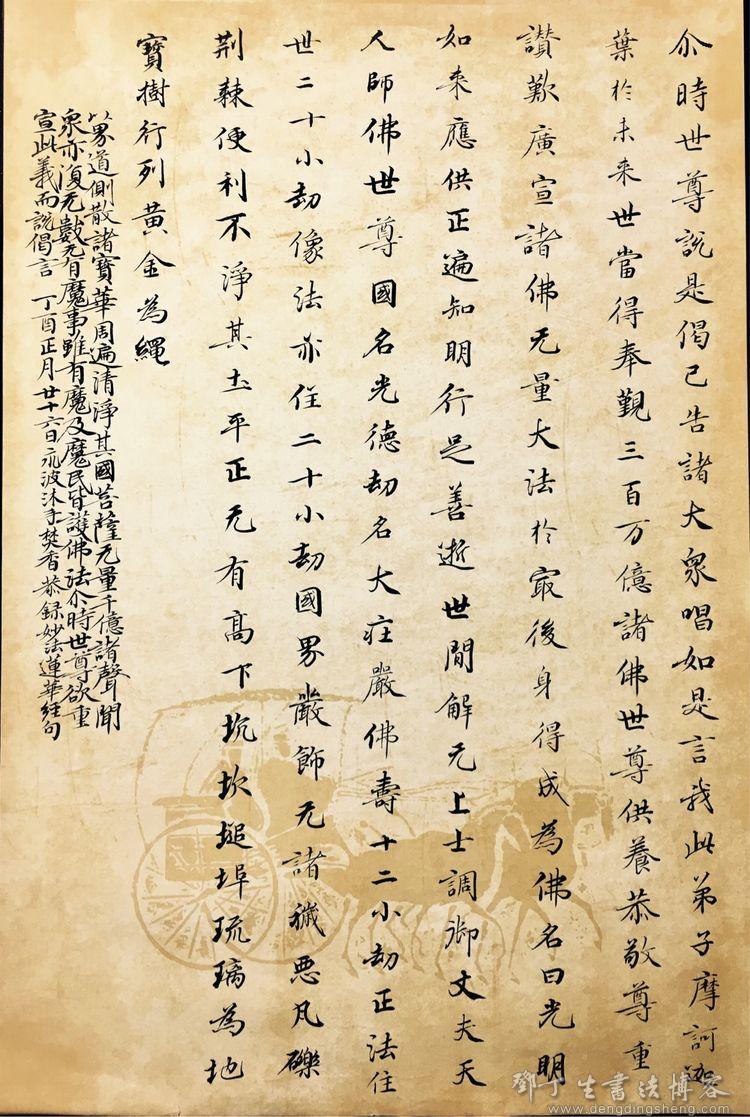 尒時世尊說是偈已告諸大眾唱如是言我此弟子摩訶迦
葉於未来世當得奉覲三百万億諸佛世尊供養恭敬尊重
讃歎廣宣諸佛无量大法於冣後身得成為佛名曰光明
如来應供正遍知明行足善逝世間解无上士調御丈夫天
人師佛世尊國名光德劫名大疘嚴佛壽十二小劫正法住
世二十小劫像法亦住二十小劫國界嚴飾无諸穢悪凡礫
荆棘便利不淨其土平正无有髙下坑坎塠埠琉璃為地
寶樹行列黄金為繩
以界道側散諸寶華周遍清淨其國菩薩无量千億諸聲聞
衆亦復无數无有魔事雖有魔及魔民皆護佛法尒時世尊欲重
宣此義而說偈言 丁酉正月廿十六日永波沐手焚香恭録妙法蓮華経句
鄧丁生書法博客
www.dengdingsheng.com